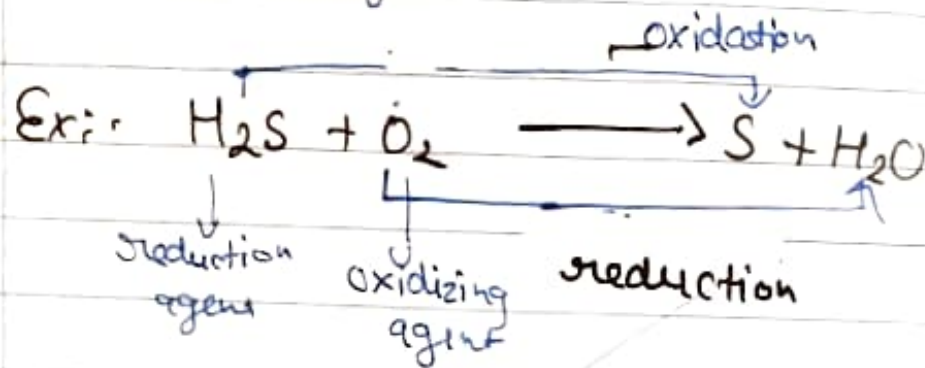 oxidastion
Ex:. H₂S + O₂ ⟶ S + H₂O
reduction
agent
oxidizing
agint
reduction